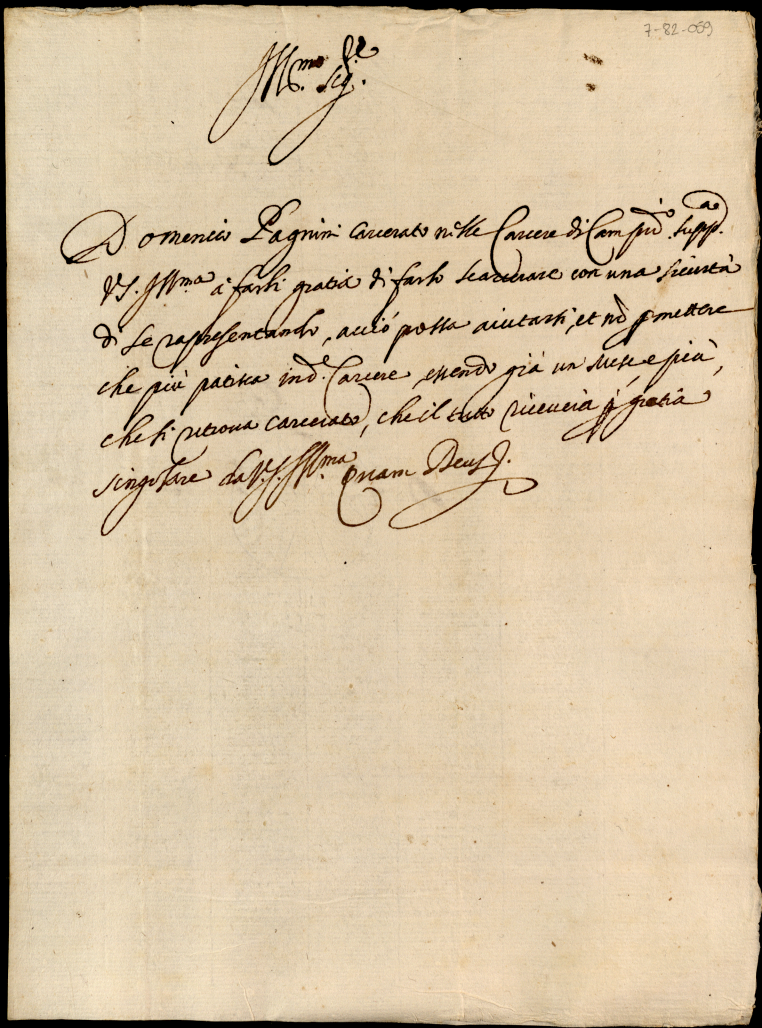 7-82-059
Ill.mo Sig.re
Domenico Pagnini carcerato nelle Carcere di Campid.o supp.a
V.S. Ill.ma à farli gratia di farlo scarcerare con una sicurtà
di se rapresentando, acciò possa aiutarsi, et nō pmettere
che più patisca in d.e Carcere, essendo già un Mese, e più,
che si ritrova carcerato, che il tutto riceverà p gratia
singolare da V.S. Ill.ma Quam Deus